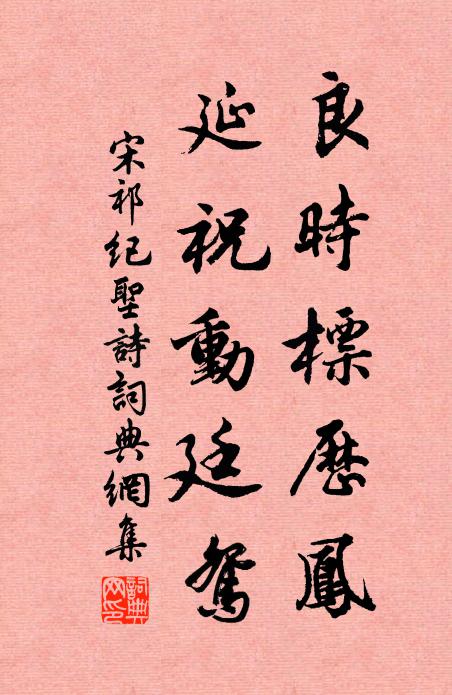 良時標歷鳳
延祝動廷鴛
宋祁紀聖詩詞典網集